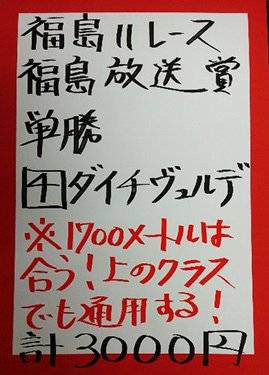 福島11レース
福島放送賞
単勝
4ダイチヴュルデ
※1700メートルは
合う!上のクラス
でも通用する!
計3000円